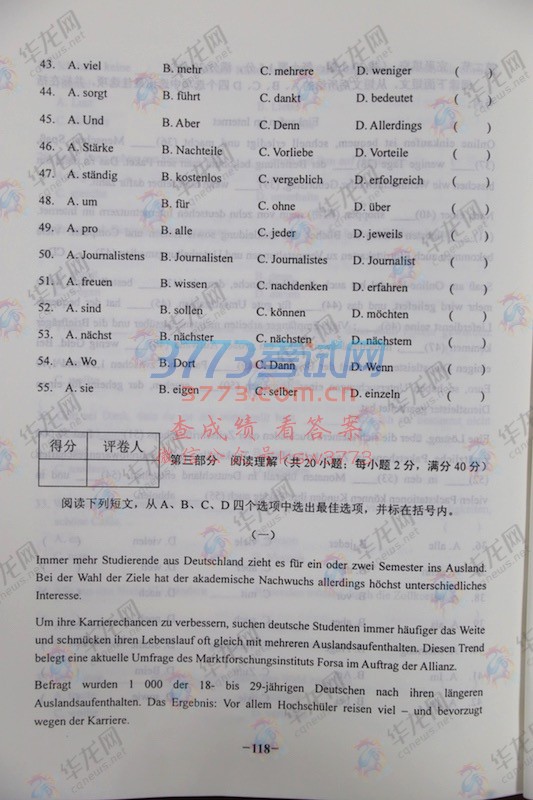 43. A. viel B. mehr C. mehrere D. weniger ( )
44. A. sorgt B. führt C. dankt D. bedeutet ( )
45. A. Und B. Aber C. Denn D. Allerdings ( )
46. A. Stärke B. Nachteile C. Vorliebe D. Vorteile ( )
47. A. ständig B. kostenlos C. vergeblich D. erfolgreich ( )
48. A. um B. für C. ohne D. über ( )
49. A. pro B. alle C. jeder D. jeweils ( )
50. A. Journalistens B. Journalisten C. Journalistes D. Journalist ( )
51. A. freuen B. wissen C. nachdenken D. erfahren ( )
52. A. sind B. sollen C. können D. möchten ( )
53. A. nächst B. nächster C. nächsten D. nächstem ( )
54. A. Wo B. Dort C. Dann D. Wenn ( )
55. A. sie B. eigen C. selber D. einzeln ( )
3773考试网
3773.com.cn
查成绩 看答案
得分 评卷人
第三部分 阅读理解（共 20 小题；每小题 2 分，满分 40 分）
阅读下列短文，从 A、B、C、D 四个选项中选出最佳选项，并标在括号内。
（一）
Immer mehr Studierende aus Deutschland zieht es für ein oder zwei Semester ins Ausland.
Bei der Wahl der Ziele hat der akademische Nachwuchs allerdings höchst unterschiedliches
Interesse.
Um ihre Karrierechancen zu verbessern, suchen deutsche Studenten immer häufiger das Weite
und schmücken ihren Lebenslauf oft gleich mit mehreren Auslandsaufenthalten. Diesen Trend
belegt eine aktuelle Umfrage des Marktforschungsinstituts Forsa im Auftrag der Allianz.
Befragt wurden 1 000 der 18- bis 29-jährigen Deutschen nach ihren längeren
Auslandsaufenthalten. Das Ergebnis: Vor allem Hochschüler reisen viel – und bevorzugt
wegen der Karriere.
-118-
华龙网
cqnews.net